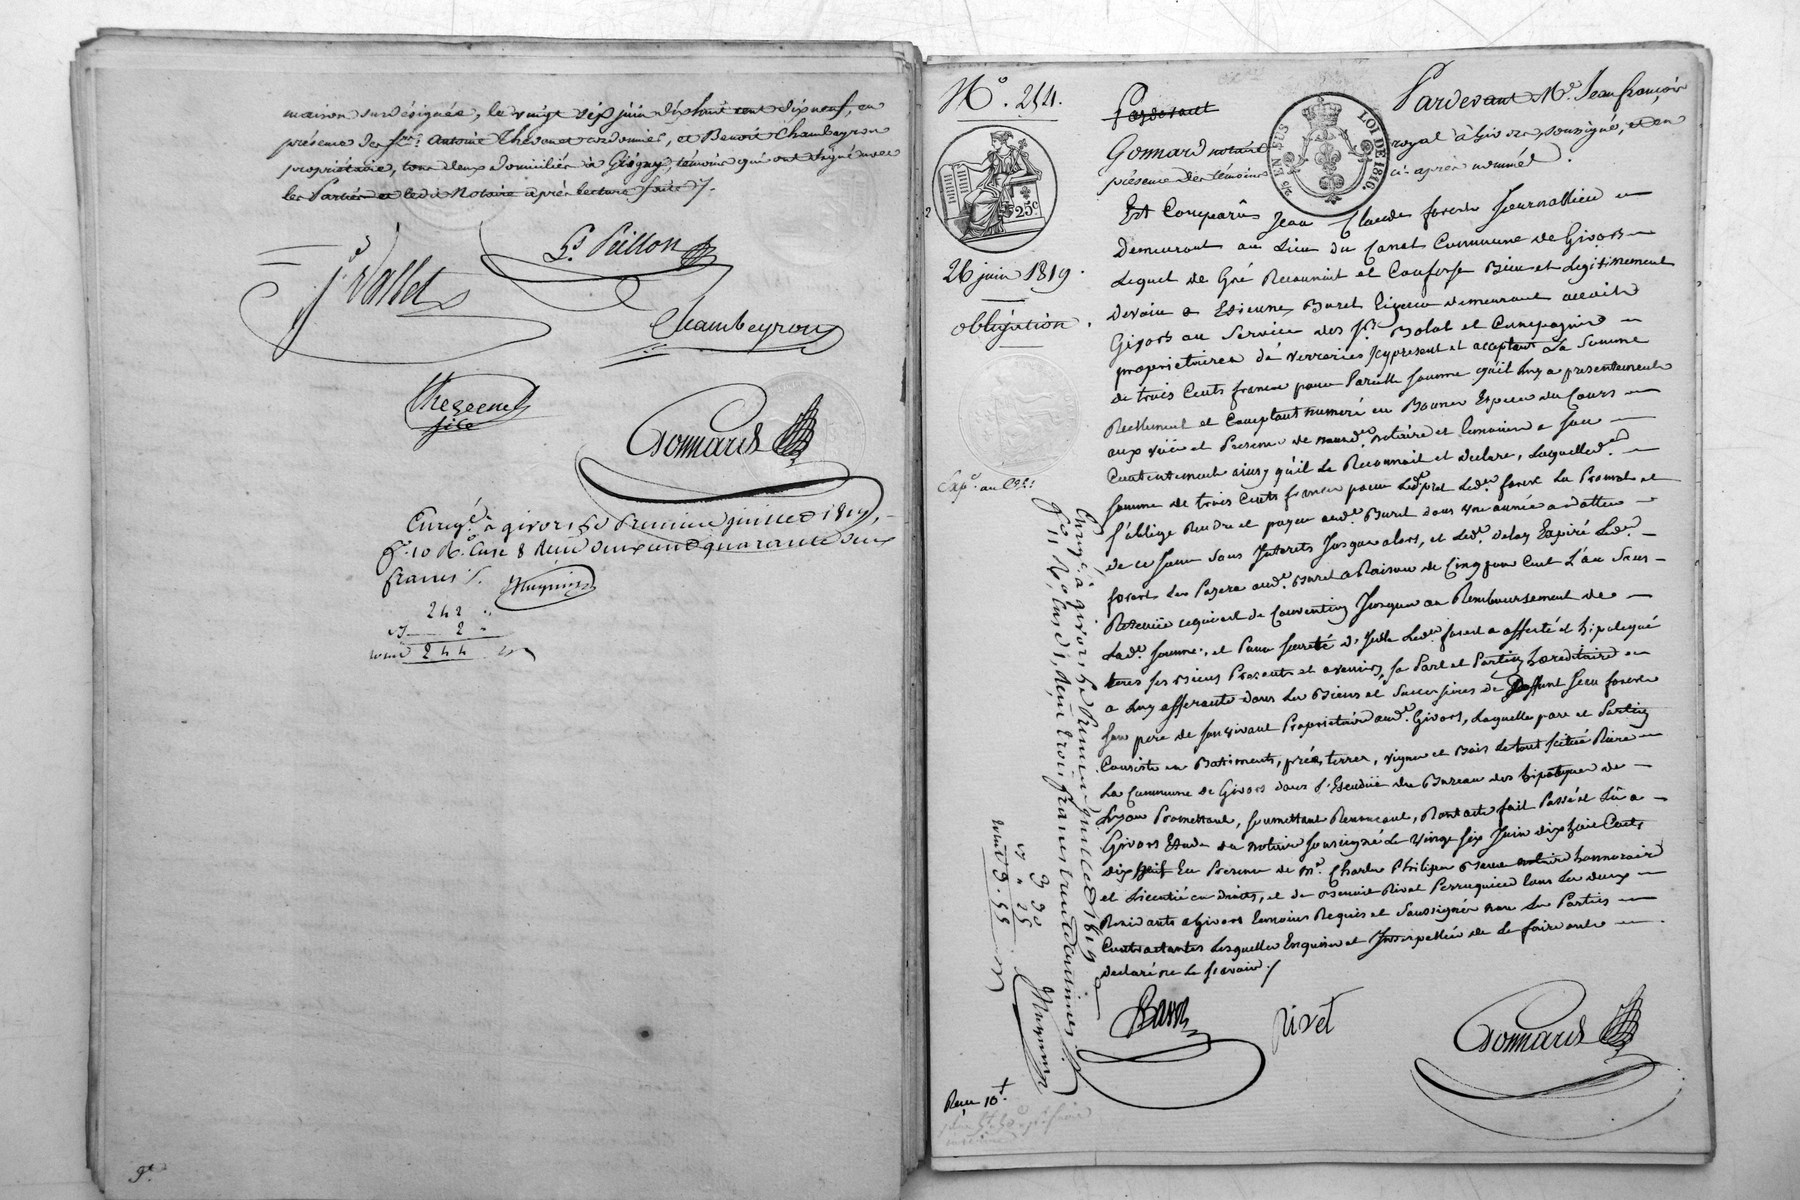 maison sus désignée, le vingt six juin dix huit cent dix neuf, en
présence des srs. Antoine Thevenet cordonnier, et Benoit Chambeyron
propriétaire, tous deux domiciliés à Grigny, temoins qui ont signé avec
les Parties et ledit Notaire après lecture faite ./.
J. Vallet
P. Paillon
Chambeyron
Thevenet
fils
Gonnard
Enregé. à givors le Premier juillet 1819,
fo. 10 Ro. Case 8 reçu deux cent quarante deux
francs ./.
242
2
244
No. 254.
25c
26 juin 1819.
obligation.
Pardevant
EN SUS
LOI DE 1816.
Pardevant Me. Jean françois
Gonnard notaire royal à Givors soussigné, et en
présence des témoins ci après nommés.
Est Comparûs Jean Claude forest Journallier
Demeurant au Lieu du Canal Commune de Givors
Lequel de Gré Reconnoit et Confesse Bien et Legitimement
Devoir a Etienne Buret demeurant
Givors au Service des srs. Bolot et Compagnie
proprietaires de verreries Icy present et acceptant La Somme
de trois Cents francs pour Pareille somme qu'il luy a presentement
Réellement et Comptant numeré en Bonnes Espèces du Cours
aux vüe et Presence de notaire et temoins a son
Contentement ainsy qu'il Le Reconnoit et declare, Laquelle de.
somme de trois Cents francs pour Led. pret Led. forest La Promet et
s'oblige Rendre et payer aud. Buret dans une année a datter
de ce jour sans Interets Jusqu'alors, et Led. delay Expiré Led.
forest Les Payera aud. Buret a Raison de Cinq pour Cent L'an Sans
Retenüe ce qui est de Convention Jusqu'au Remboursement de
Lad. somme, et Pour Sureté d'Icelle Led. forest a affecté et hipotequé
tous ses Biens Presents et avenirs, sa Part et Portion hereditaire
a Luy afferante dans Les Biens et Successions de Deffunt Jean forest
son pere de son vivant Propriétaire aud. Givors, Laquelle part et Portion
Consiste en Batiments, prés, terres, vignes et Bois Le tout scitué Riere
La Commune de Givors dans L'Etendüe du Bureau des hipoteques de
Lyon Promettant, soumettant Renoncant, Dont acte fait Passé et Lû a
Givors Etude du notaire soussigné Le vingt six Juin dix huit Cents
dix neuf En Presence de Mr. Charles Philipe notaire honnoraire
et Licentié en droits, et de Benoit Rivet Perruquier tous Les deux
Residants a Givors temoins Requis et Soussignés non Les Parties
Contractantes Lesquelles Enquises et Interpellées de Le faire ont
declaré ne Le savoir ./.
Rivet
Gonnard
Enregé. à givors le Premier juillet 1819
fo. 11 Ro. Case 1, reçu trois francs
3 30
Reçu 10f.